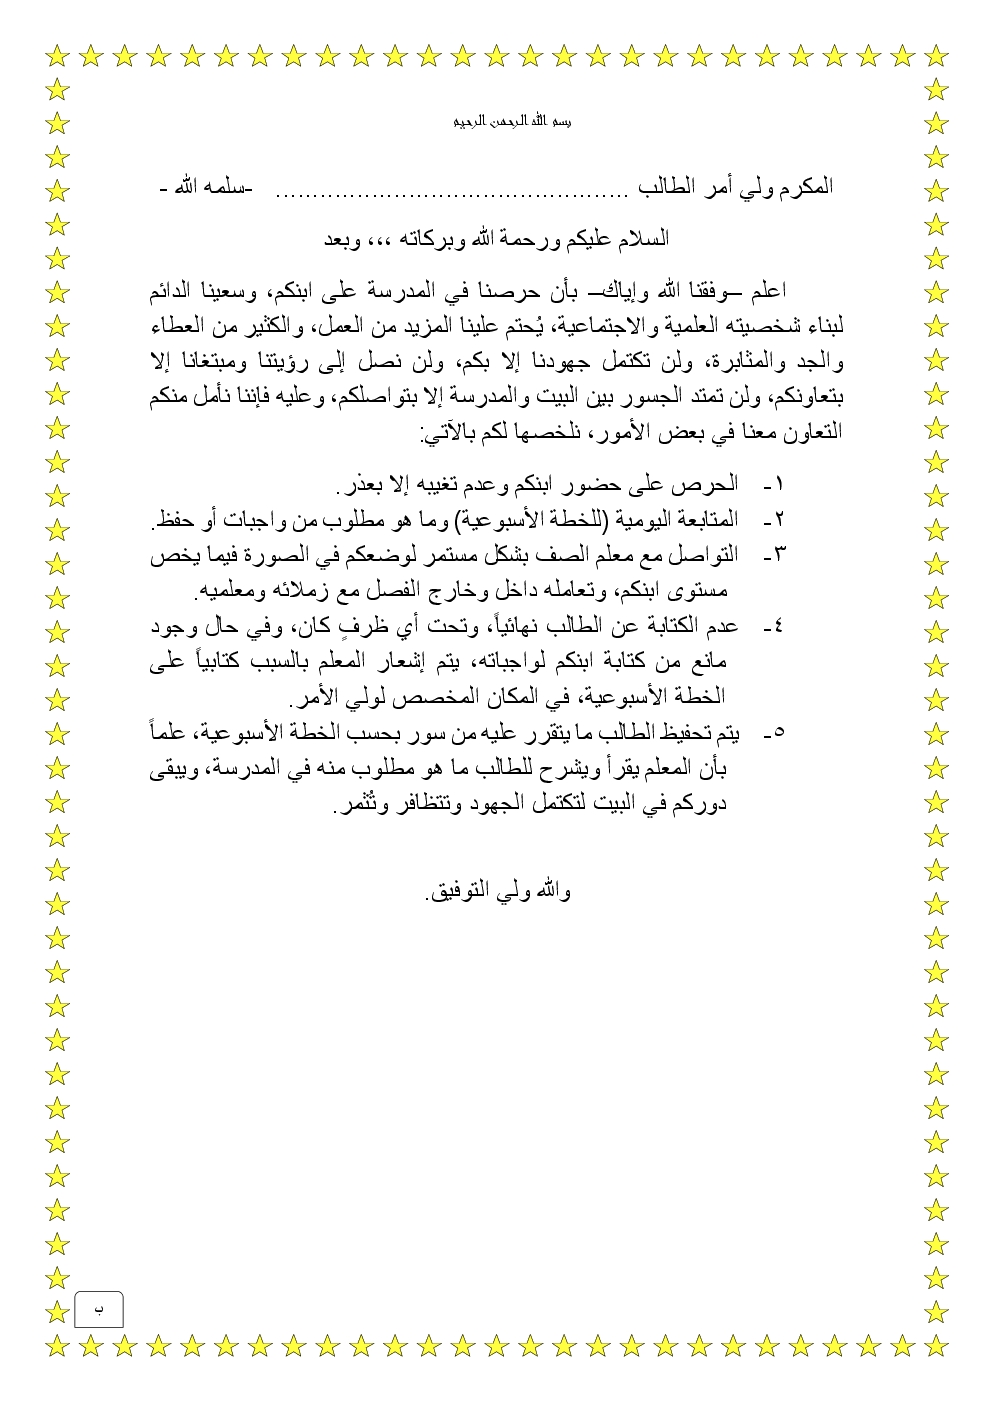 بسم الله الرحمن الرحيم
المكرم ولي أمر الطالب ................................................ -سلمه الله -
السلام عليكم ورحمة الله وبركاته ،،، وبعد
اعلم –وفقنا الله وإياك– بأن حرصنا في المدرسة على ابنكم، وسعينا الدائم
لبناء شخصيته العلمية والاجتماعية، يُحتم علينا المزيد من العمل، والكثير من العطاء
والجد والمثابرة، ولن تكتمل جهودنا إلا بكم، ولن نصل إلى رؤيتنا ومبتغانا إلا
بتعاونكم، ولن تمتد الجسور بين البيت والمدرسة إلا بتواصلكم، وعليه فإننا نأمل منكم
التعاون معنا في بعض الأمور، نلخصها لكم بالآتي:
١- الحرص على حضور ابنكم وعدم تغيبه إلا بعذر.
٢- المتابعة اليومية (للخطة الأسبوعية) وما هو مطلوب من واجبات أو حفظ.
٣- التواصل مع معلم الصف بشكل مستمر لوضعكم في الصورة فيما يخص
مستوى ابنكم، وتعامله داخل وخارج الفصل مع زملائه ومعلميه.
٤- عدم الكتابة عن الطالب نهائياً، وتحت أي ظرفٍ كان، وفي حال وجود
مانع من كتابة ابنكم لواجباته، يتم إشعار المعلم بالسبب كتابياً على
الخطة الأسبوعية، في المكان المخصص لولي الأمر.
٥- يتم تحفيظ الطالب ما يتقرر عليه من سور بحسب الخطة الأسبوعية، علماً
بأن المعلم يقرأ ويشرح للطالب ما هو مطلوب منه في المدرسة، ويبقى
دوركم في البيت لتكتمل الجهود وتتظافر وتُثمر.
والله ولي التوفيق.
ب